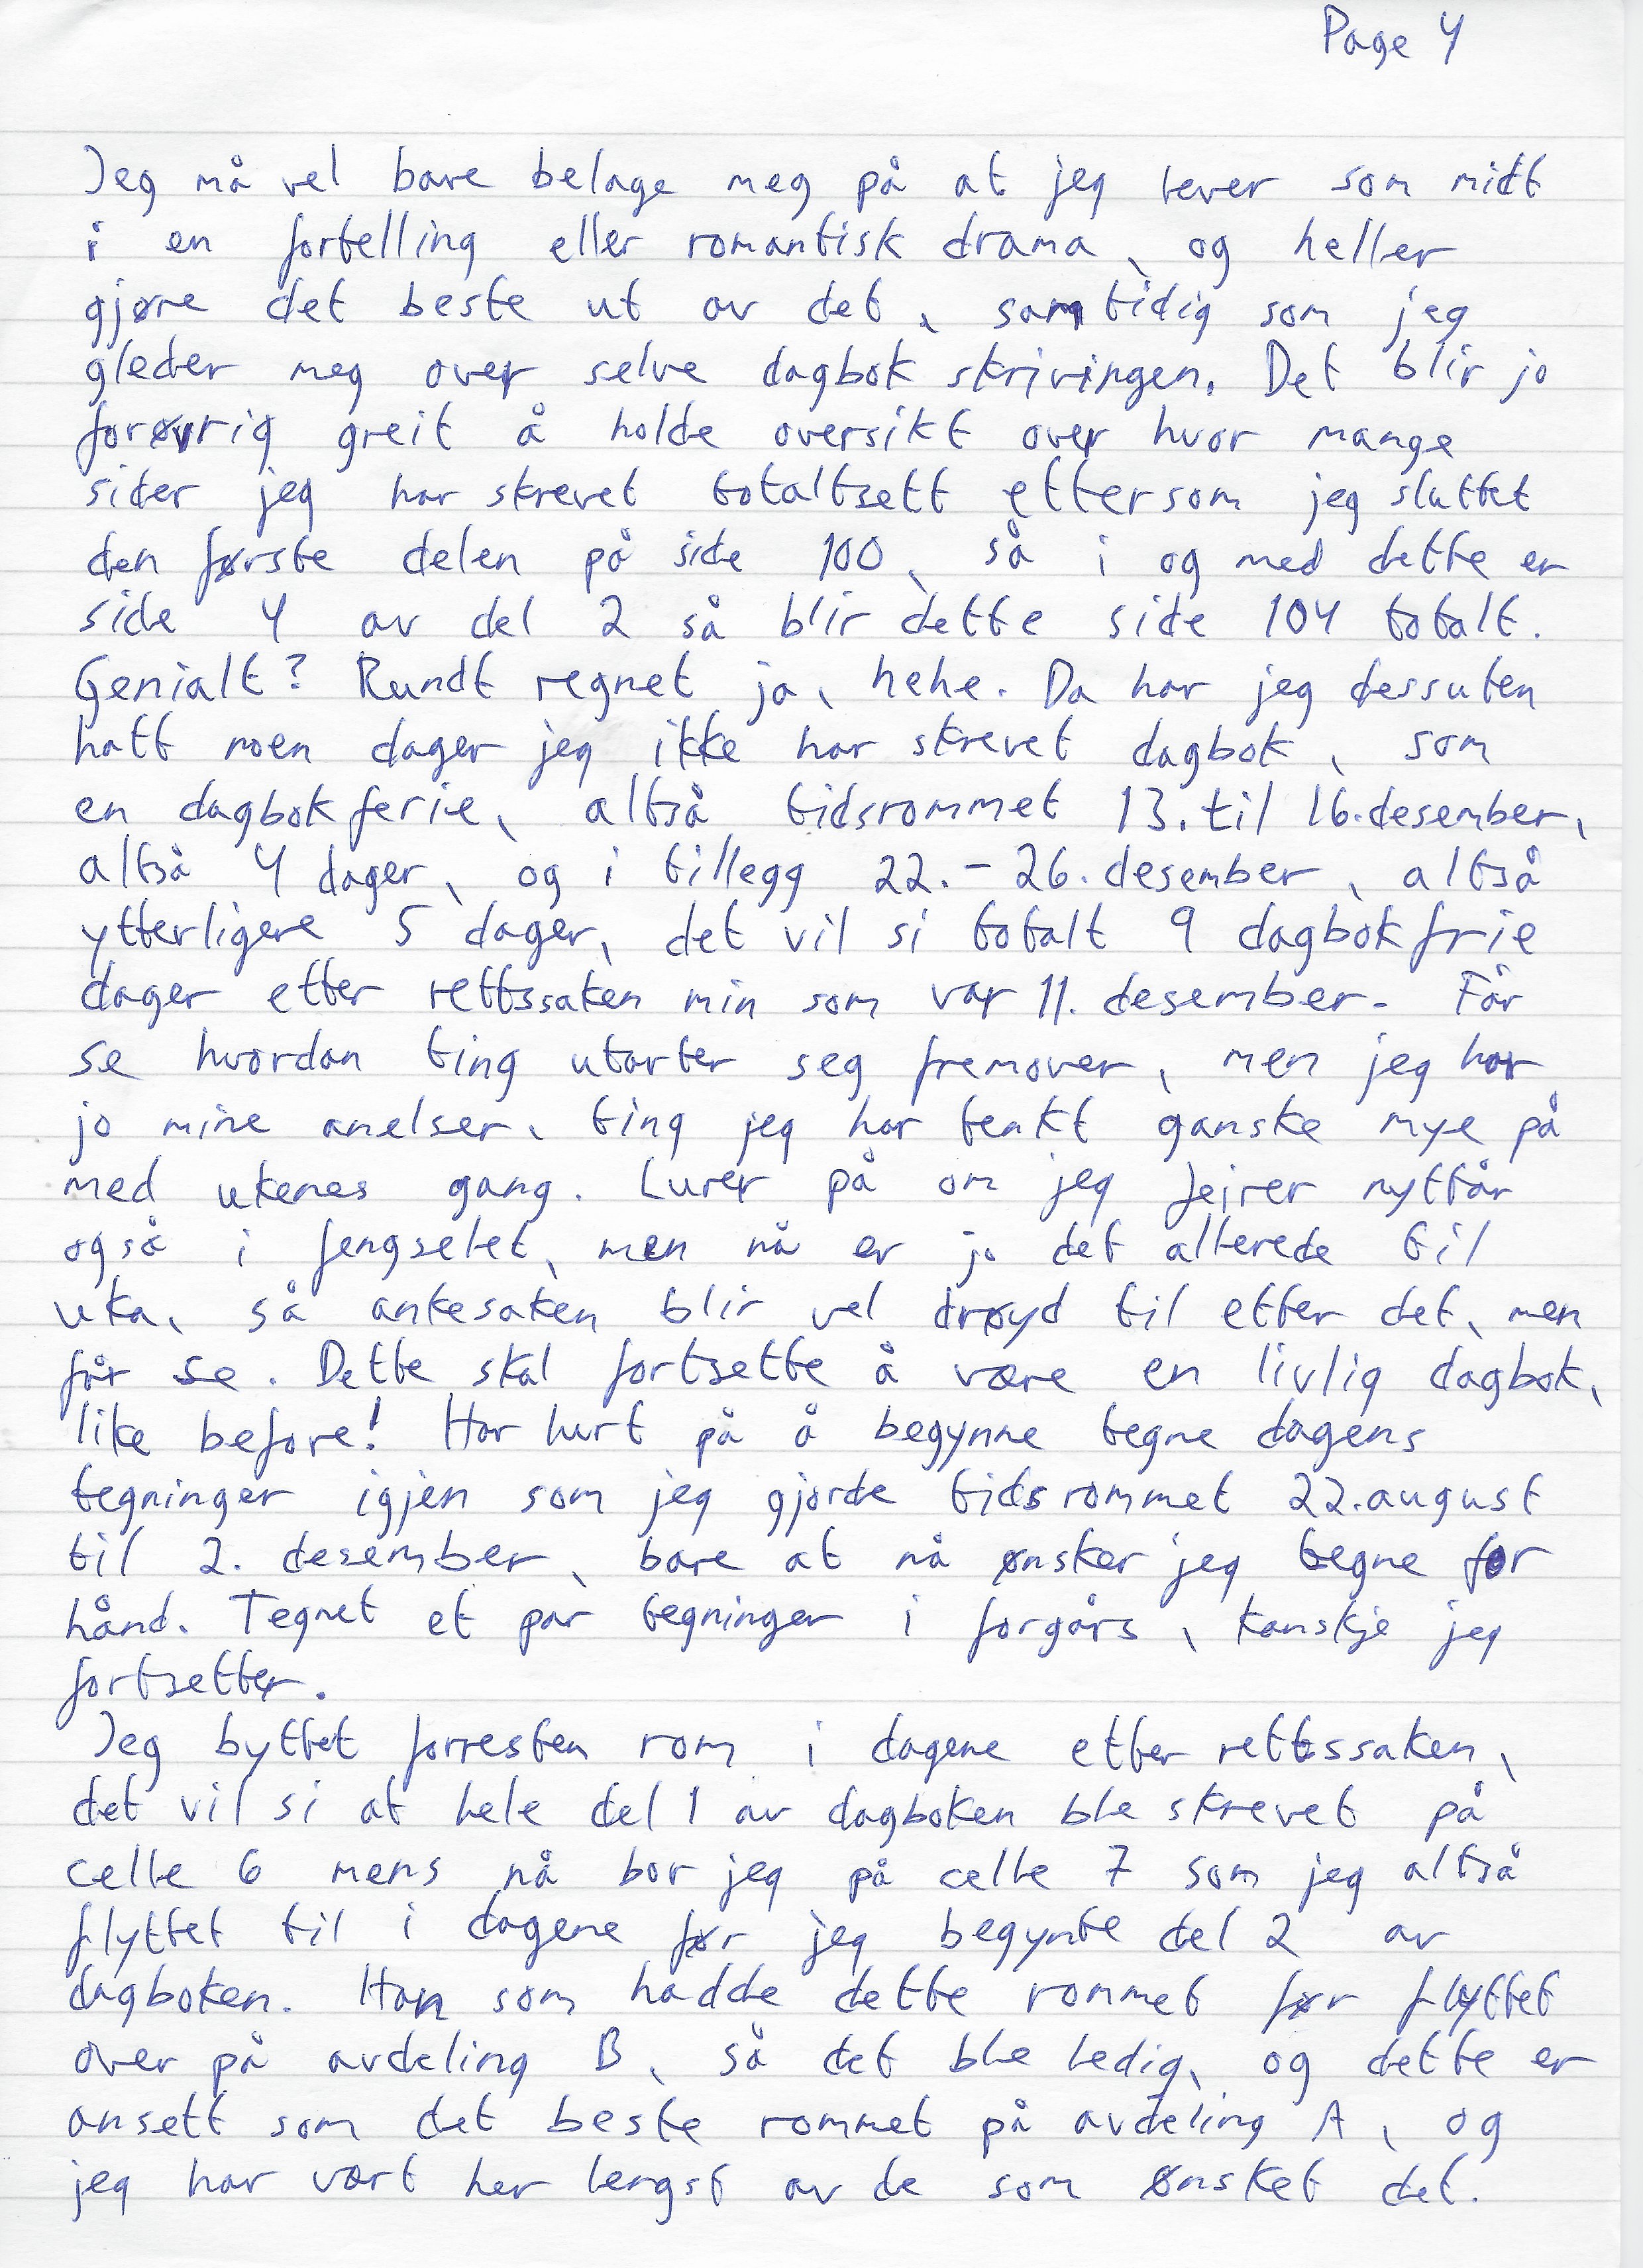 Page 4
Jeg må vel bare belage meg på at jeg lever som midt
i en fortelling eller romantisk drama, og heller
gjøre det beste ut av det, samtidig som jeg
gleder meg over selve dagbok skrivingen. Det blir jo
forøvrig greit å holde oversikt over hvor mange
sider jeg har skrevet totaltsett ettersom jeg sluttet
den første delen på side 100, så i og med dette er
side 4 av del 2 så blir dette side 104 totalt.
Genialt? Rundt regnet ja, hehe. Da har jeg dessuten
hatt noen dager jeg ikke har skrevet dagbok, som
en dagbokferie, altså tidsrommet 13. til 16. desember,
altså 4 dager, og i tillegg 22. - 26. desember, altså
ytterligere 5 dager, det vil si totalt 9 dagbokfrie
dager etter rettssaken min som var 11. desember. Får
se hvordan ting utarter seg fremover, men jeg har
jo mine anelser, ting jeg har tenkt ganske mye på
med ukenes gang. Lurer på om jeg feirer nyttår
også i fengselet, men nå er jo det allerede til
uka, så ankesaken blir vel drøyd til etter det, men
får se. Dette skal fortsette å være en livlig dagbok,
like before! Har lurt på å begynne tegne dagens
tegninger igjen som jeg gjorde tidsrommet 22. august
til 2. desember, bare at nå ønsker jeg tegne for
hånd. Tegnet et par tegninger i forgårs, kanskje jeg
fortsetter.
Jeg byttet forresten rom i dagene etter rettssaken,
det vil si at hele del 1 av dagboken ble skrevet på
celle 6 mens nå bor jeg på celle 7 som jeg altså
flyttet til i dagene før jeg begynte del 2 av
dagboken. Han som hadde dette rommet før flyttet
over på avdeling B, så det ble ledig, og dette er
ansett som det beste rommet på avdeling A, og
jeg har vært her lengst av de som ønsket det.